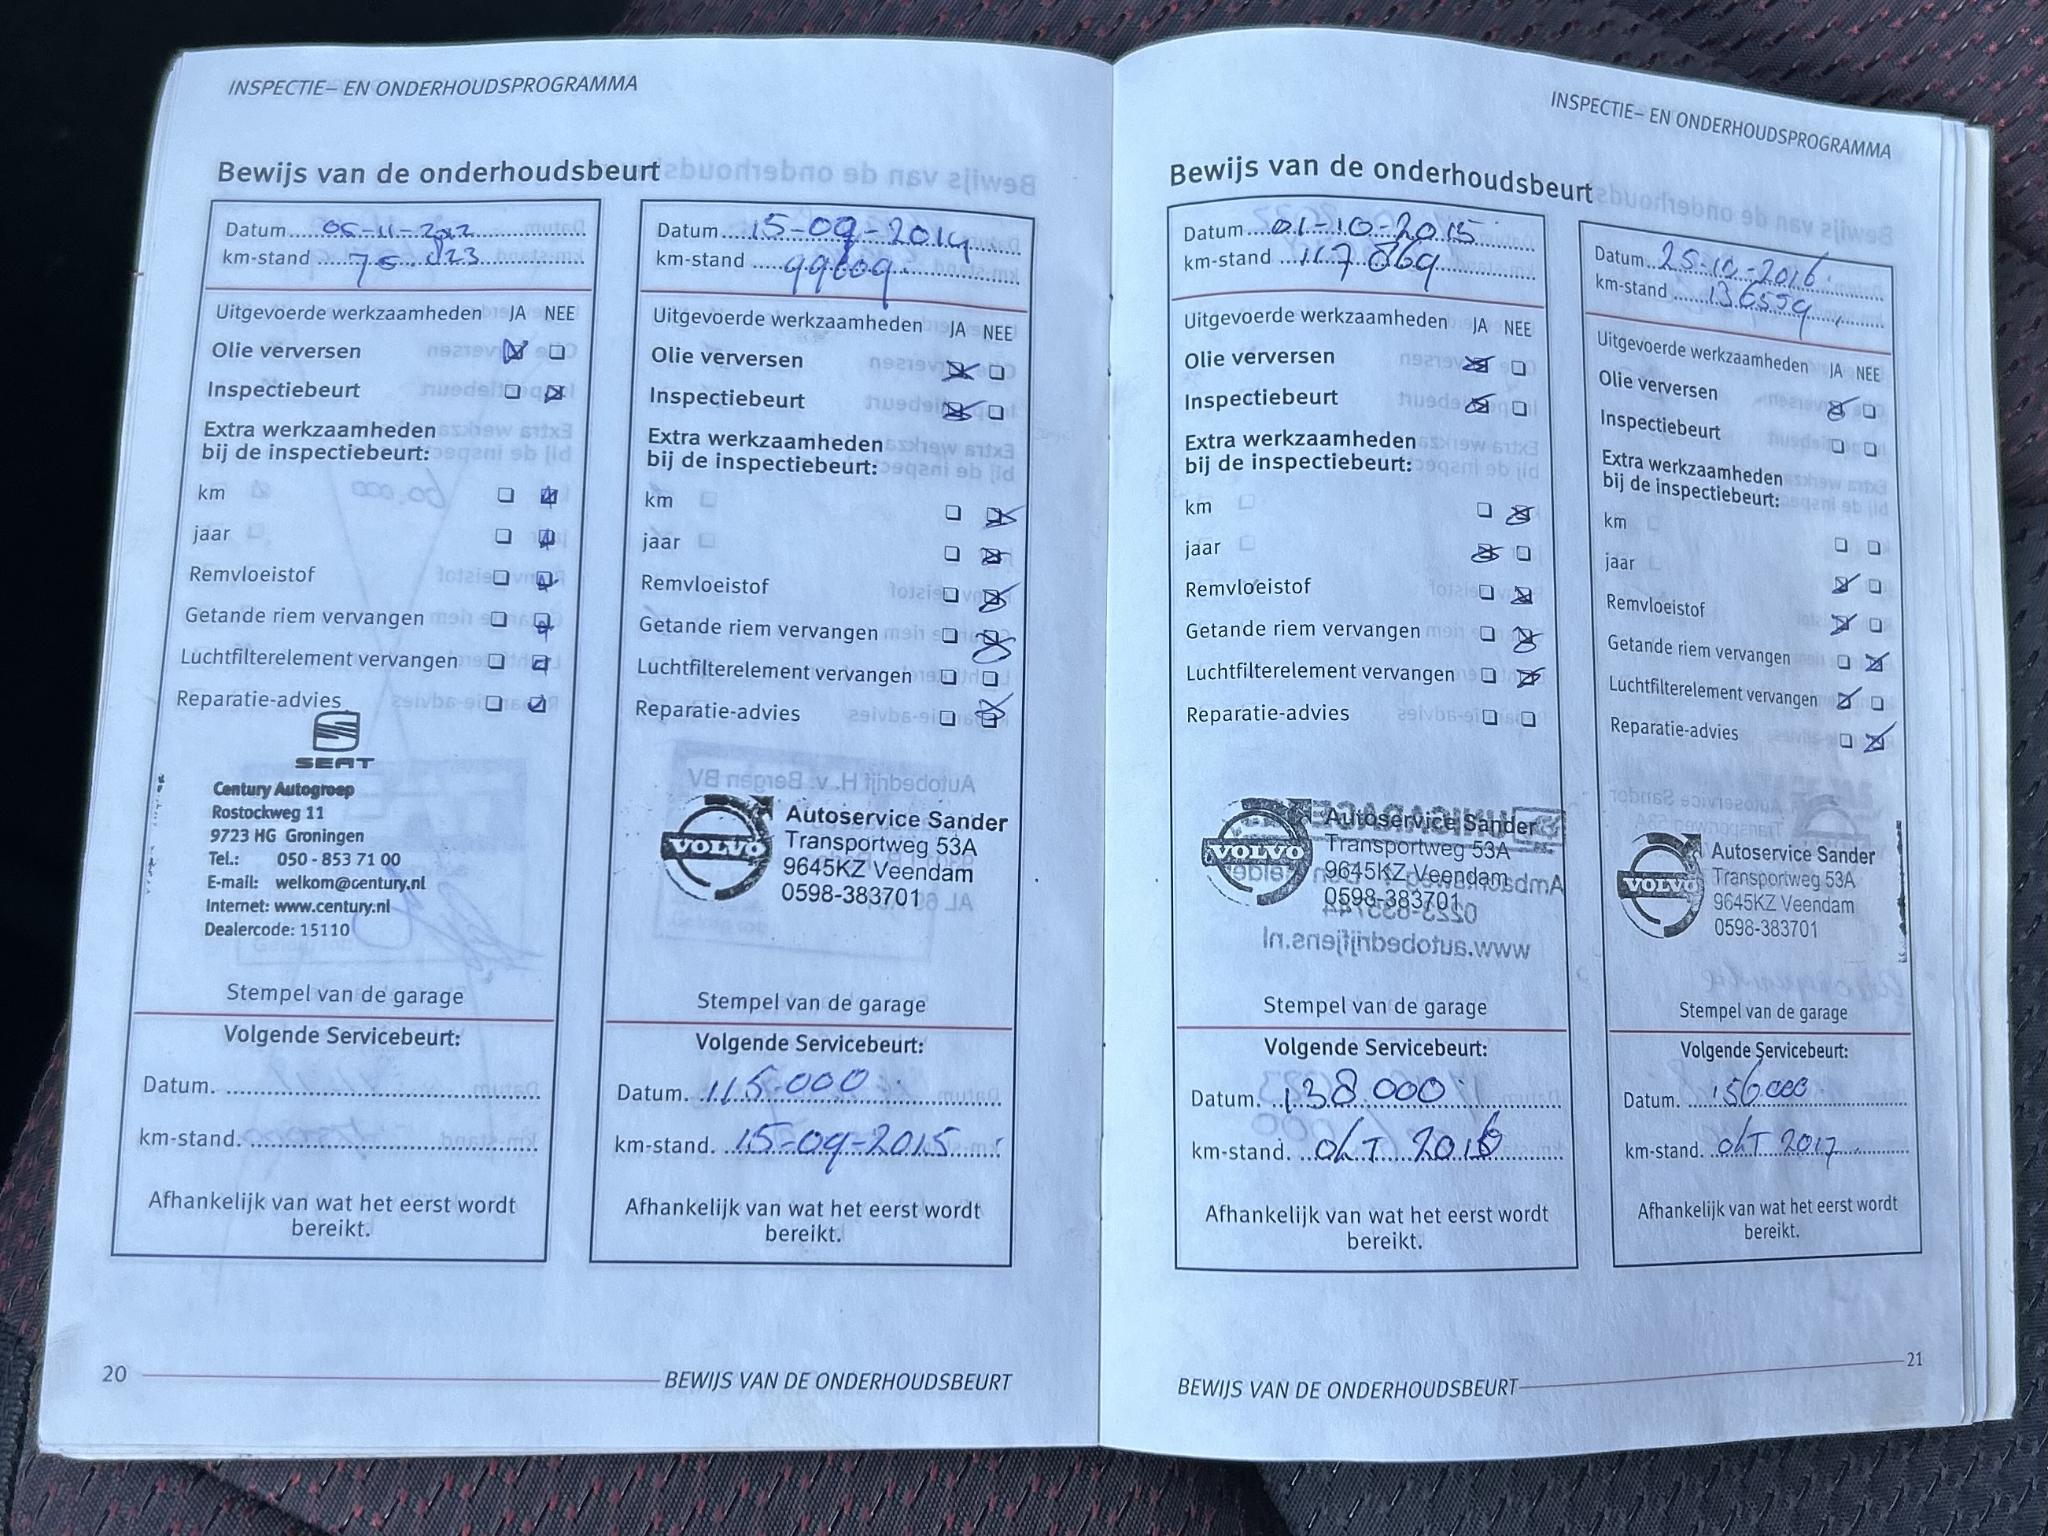 INSPECTIE– EN ONDERHOUDSPROGRAMMA
Bewijs van de onderhoudsbeurt
Datum 05-11-2012
km-stand
Uitgevoerde werkzaamheden JA NEE
Olie verversen
Inspectiebeurt
Extra werkzaamheden
bij de inspectiebeurt:
km
jaar
Remvloeistof
Getande riem vervangen
Luchtfilterelement vervangen
Reparatie-advies
SEAT
Century Autogroep
Rostockweg 11
9723 HG Groningen
Tel.: 050 - 853 71 00
E-mail: welkom@century.nl
Internet: www.century.nl
Dealercode: 15110
Stempel van de garage
Volgende Servicebeurt:
Datum.
km-stand.
Afhankelijk van wat het eerst wordt
bereikt.
Datum 15-09-2014
km-stand 99609
Uitgevoerde werkzaamheden JA NEE
Olie verversen
Inspectiebeurt
Extra werkzaamheden
bij de inspectiebeurt:
km
jaar
Remvloeistof
Getande riem vervangen
Luchtfilterelement vervangen
Reparatie-advies
VOLVO
Autoservice Sander
Transportweg 53A
9645KZ Veendam
0598-383701
Stempel van de garage
Volgende Servicebeurt:
Datum. 115.000
km-stand. 15-09-2015
Afhankelijk van wat het eerst wordt
bereikt.
20
BEWIJS VAN DE ONDERHOUDSBEURT
INSPECTIE– EN ONDERHOUDSPROGRAMMA
Bewijs van de onderhoudsbeurt
Datum 01-10-2015
km-stand 117869
Uitgevoerde werkzaamheden JA NEE
Olie verversen
Inspectiebeurt
Extra werkzaamheden
bij de inspectiebeurt:
km
jaar
Remvloeistof
Getande riem vervangen
Luchtfilterelement vervangen
Reparatie-advies
VOLVO
Autoservice Sander
Transportweg 53A
9645KZ Veendam
0598-383701
Stempel van de garage
Volgende Servicebeurt:
Datum. 138.000
km-stand. okT 2016
Afhankelijk van wat het eerst wordt
bereikt.
Datum 25-10-2016
km-stand 136559
Uitgevoerde werkzaamheden JA NEE
Olie verversen
Inspectiebeurt
Extra werkzaamheden
bij de inspectiebeurt:
km
jaar
Remvloeistof
Getande riem vervangen
Luchtfilterelement vervangen
Reparatie-advies
VOLVO
Autoservice Sander
Transportweg 53A
9645KZ Veendam
0598-383701
Stempel van de garage
Volgende Servicebeurt:
Datum. 156.000
km-stand. okT 2017
Afhankelijk van wat het eerst wordt
bereikt.
BEWIJS VAN DE ONDERHOUDSBEURT
21